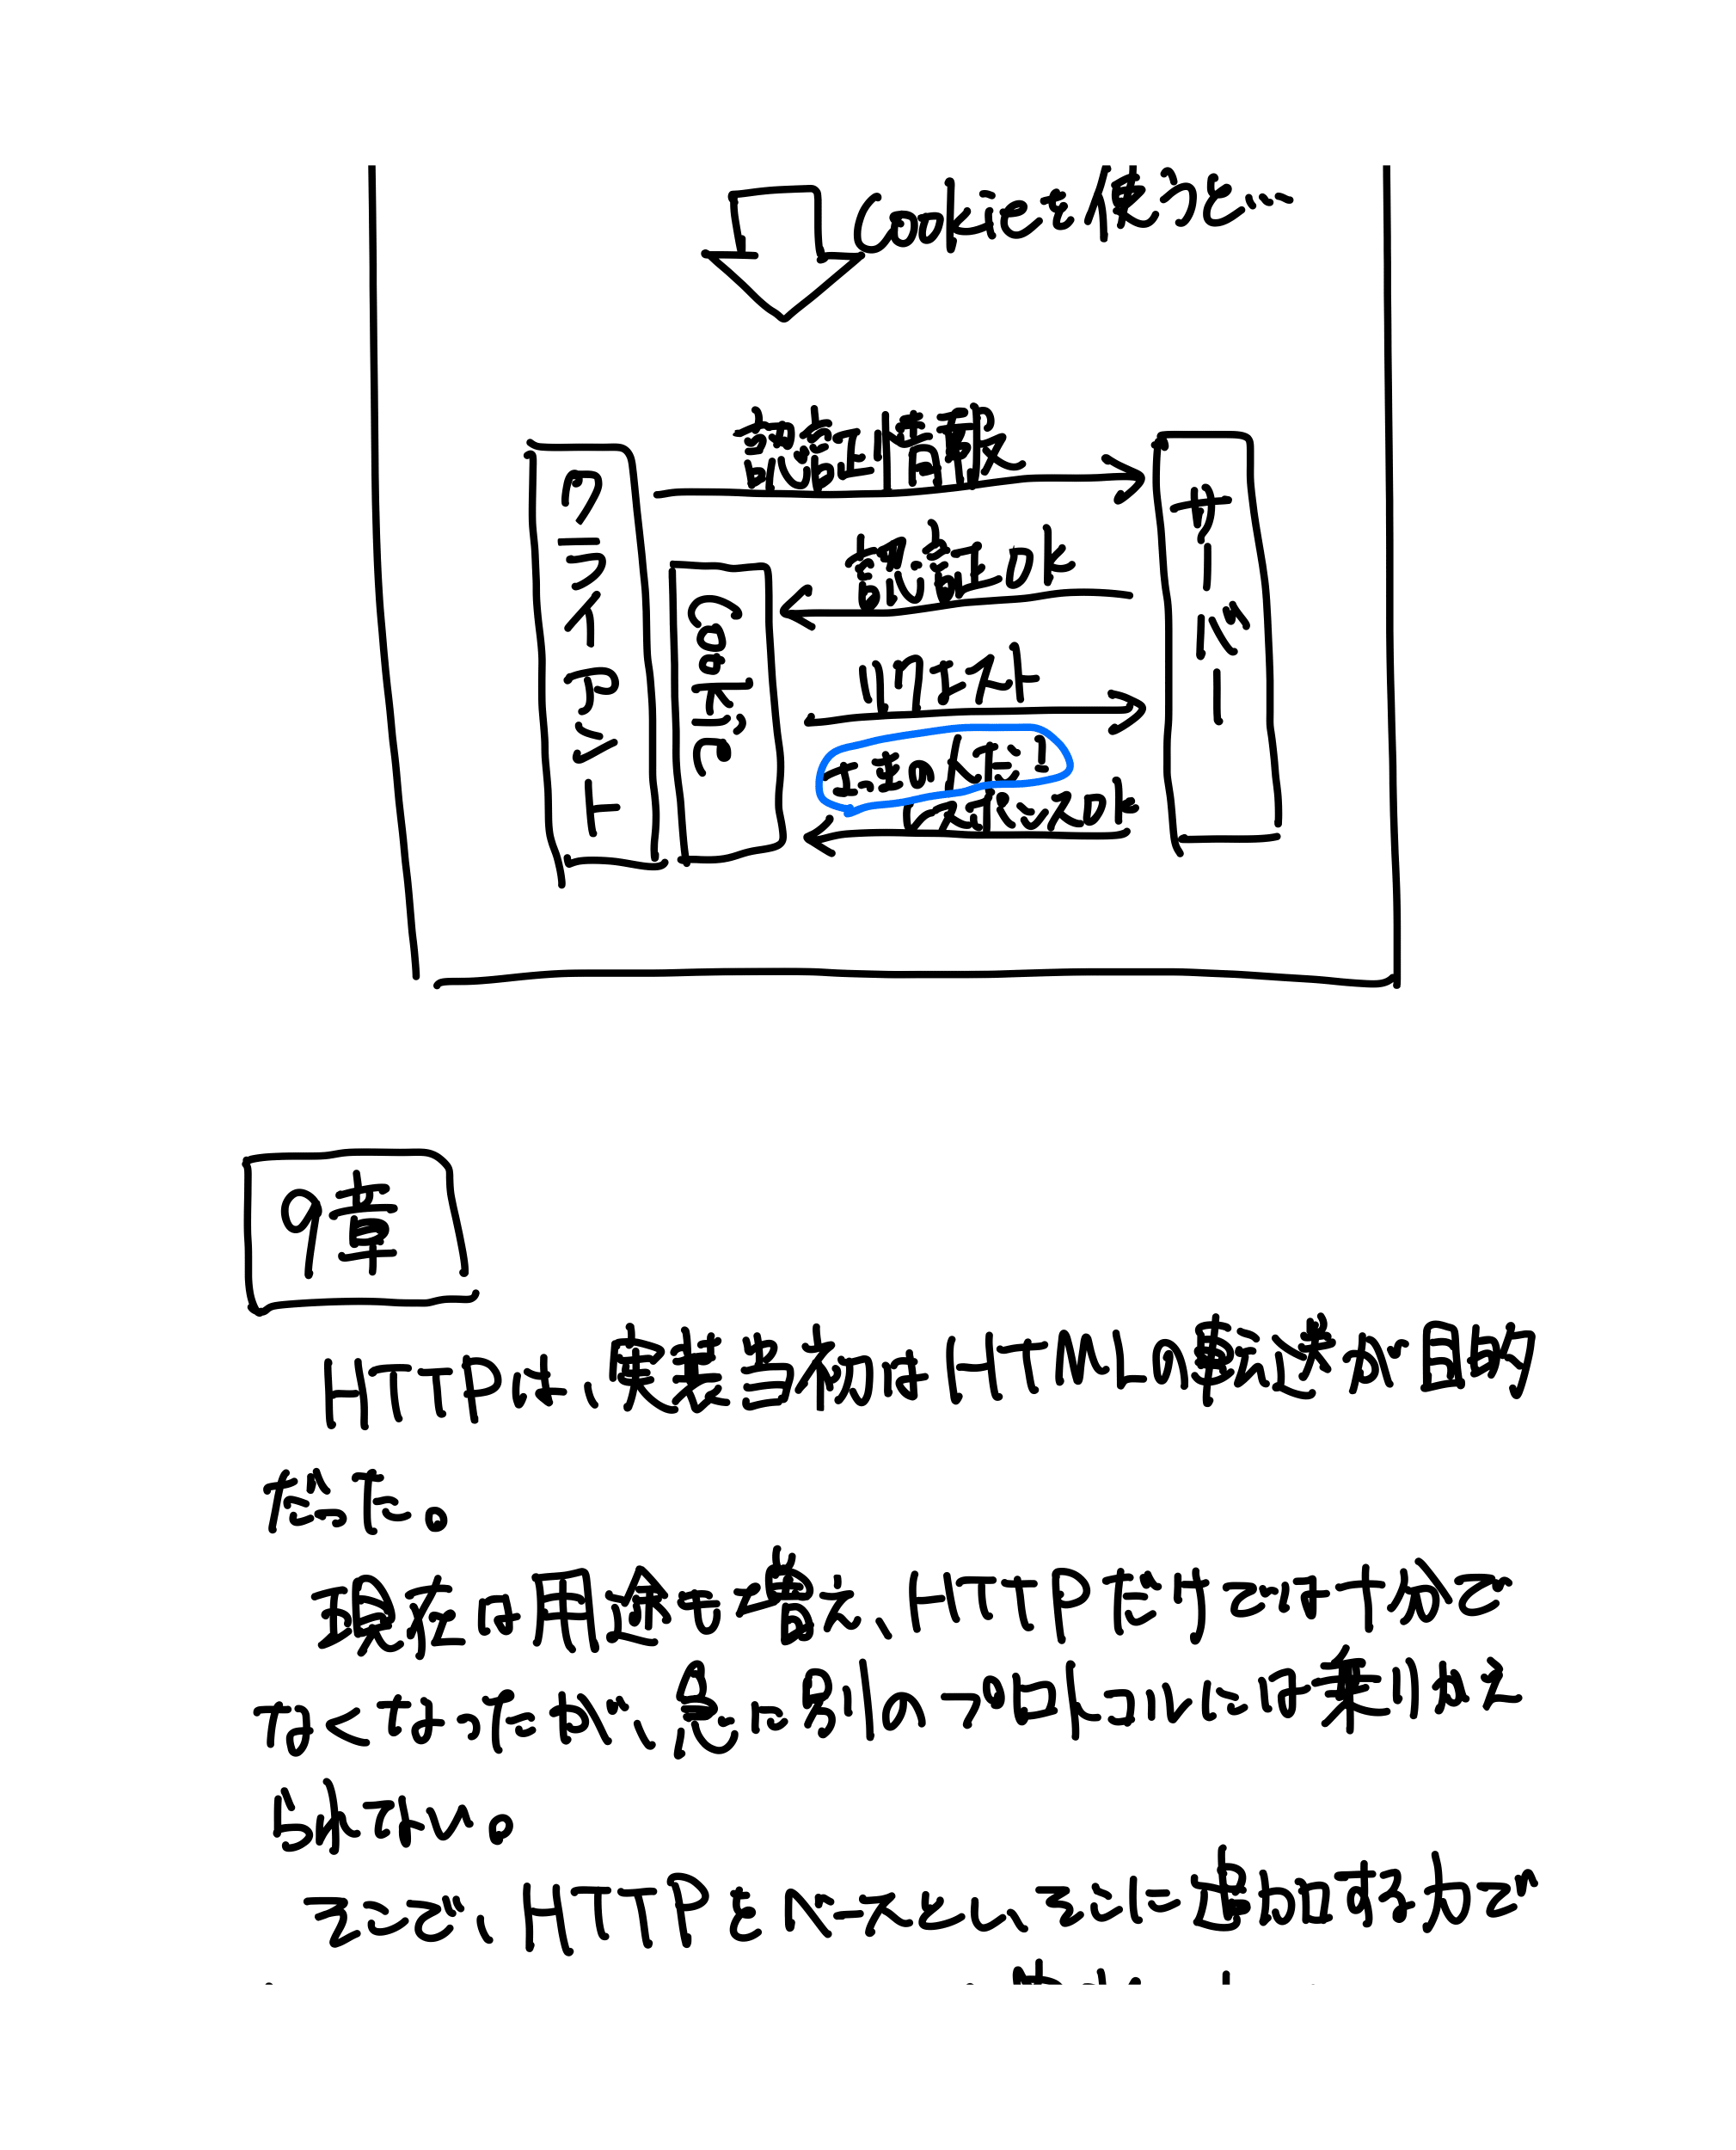 Cookieを使うと…
認証情報
クライアント
サーバー
認証OK
Cookie
リクエスト
さっきの人だ!
リクエストOK
9章
HTTPは、実装当初はHTMLの転送が目的
だった。
現在は用途も増え、HTTPだけでは十分で
なくなったが、急に別のプロトコルには乗りかえ
られない。
そこで、HTTPをベースとし、そこに追加する力で